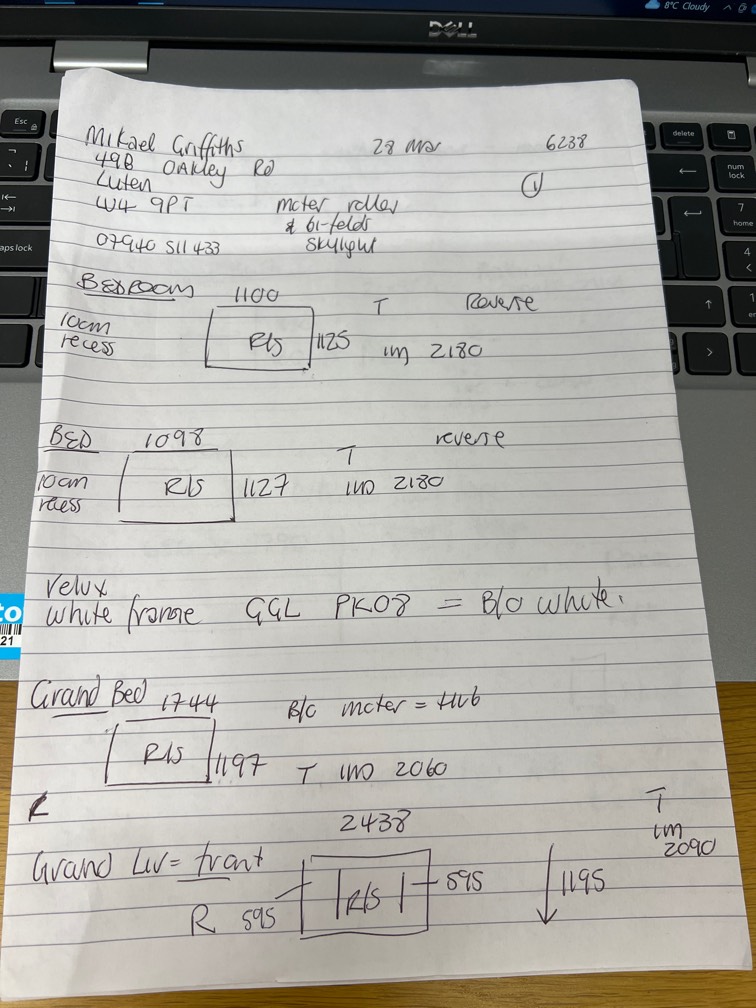 8°C Cloudy
DELL
Esc
delete
num
lock
7
home
4
aps lock
to
21
Mikael Griffiths 28 Mar 6238
49B OAKley Rd
Luten 1
W4 9PT moter roller
& bi-folds
07940 511 433 Skylight
BEDROOM 1100 T Reverse
10cm
recess R/S 1125 1m 2180
BED 1098 T reverse
10cm R/S 1127 2180
recess
Velux
white frame GGL PK08 = B/O white.
Grand Bed 1744 B/O moter = Hub
R/S 1197 T 2060
2438 T
1m
2090
Grand Liv = front R/S 595 1195
R 595